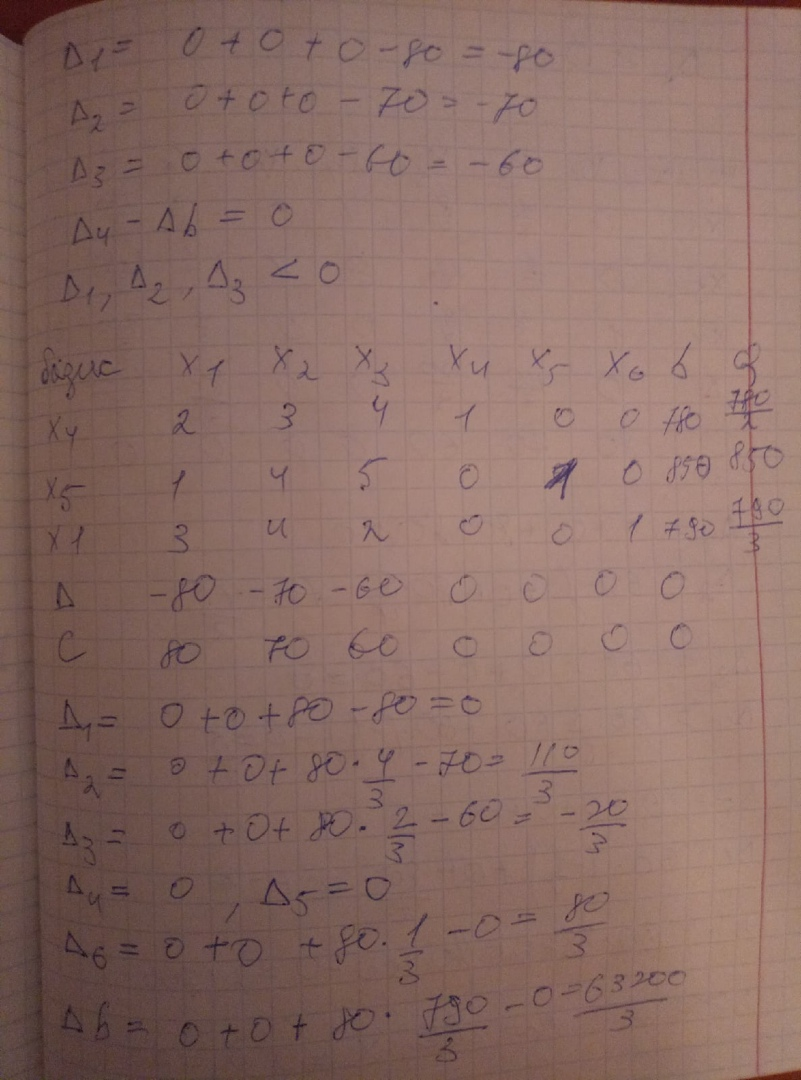 Δ1 = 0 + 0 + 0 - 80 = -80
Δ2 = 0 + 0 + 0 - 70 = -70
Δ3 = 0 + 0 + 0 - 60 = -60
Δ4 - Δb = 0
Δ1, Δ2, Δ3 < 0
базис x1 x2 x3 x4 x5 x6 b Q
x4 2 3 4 1 0 0 780 780/2
x5 1 4 5 0 1 0 850 850
x1 3 4 2 0 0 1 790 790/3
Δ -80 -70 -60 0 0 0 0
C 80 70 60 0 0 0 0
Δ1 = 0 + 0 + 80 - 80 = 0
Δ2 = 0 + 0 + 80 · 4/3 - 70 = 110/3
Δ3 = 0 + 0 + 80 · 2/3 - 60 = -20/3
Δ4 = 0, Δ5 = 0
Δ6 = 0 + 0 + 80 · 1/3 - 0 = 80/3
Δb = 0 + 0 + 80 · 790/3 - 0 = 63200/3